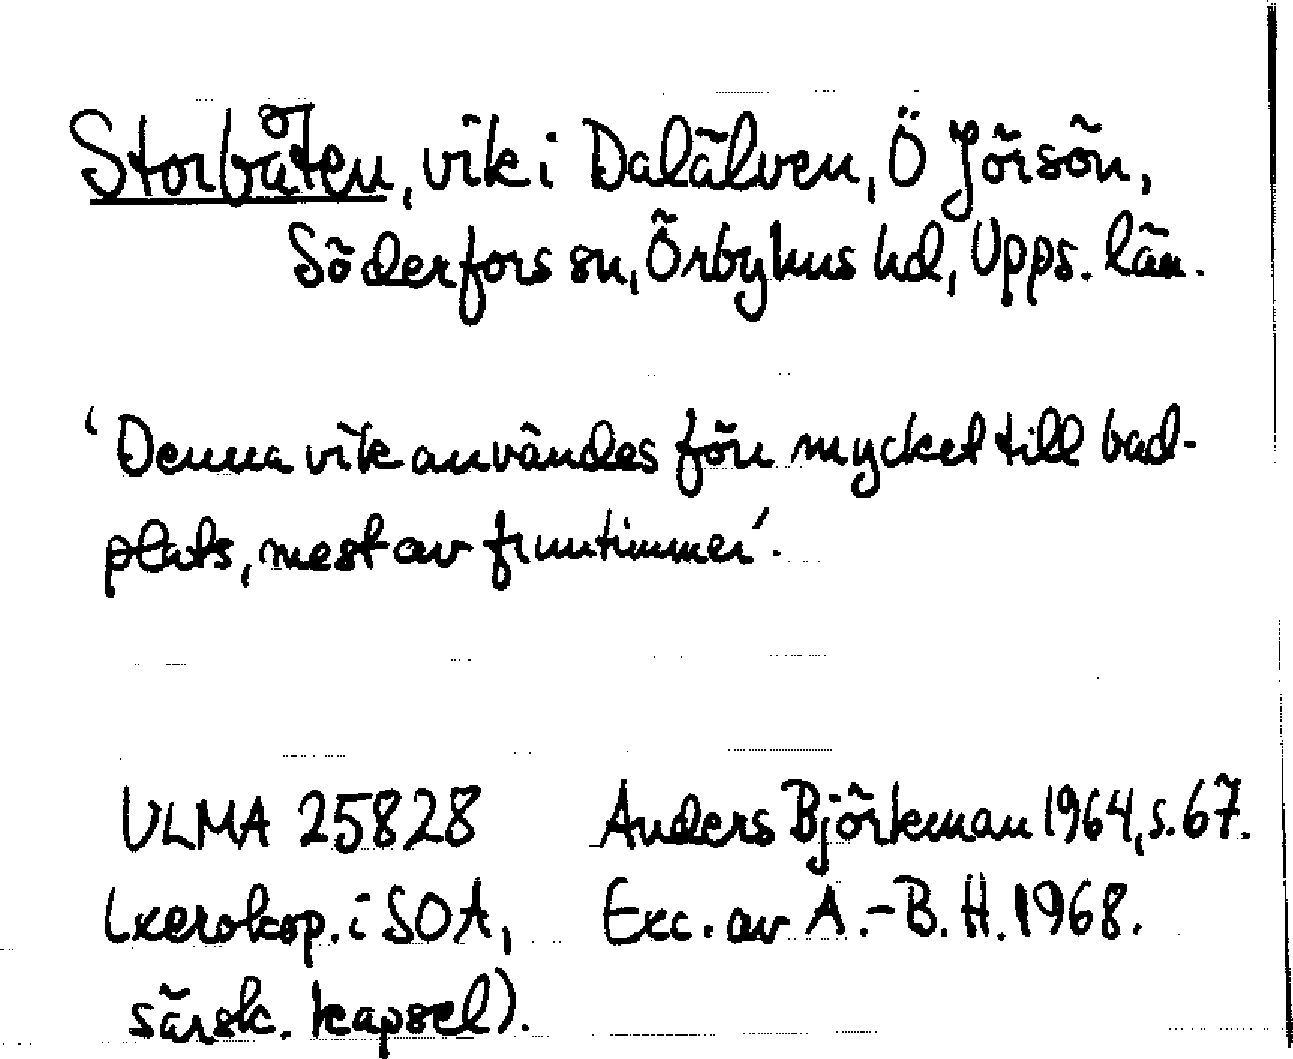 Storbåten, vik i Dalälven, Ö Jörsön,
Söderfors sn, Örbyhus hd, Upps. län.
'Denna vik användes förr mycket till bad-
plats, mest av fruntimmer'.
ULMA 25828 Anders Björkman 1964, s. 67.
(xerokop. i SOA, Exc. av A.-B. H. 1968.
särsk. kapsel).